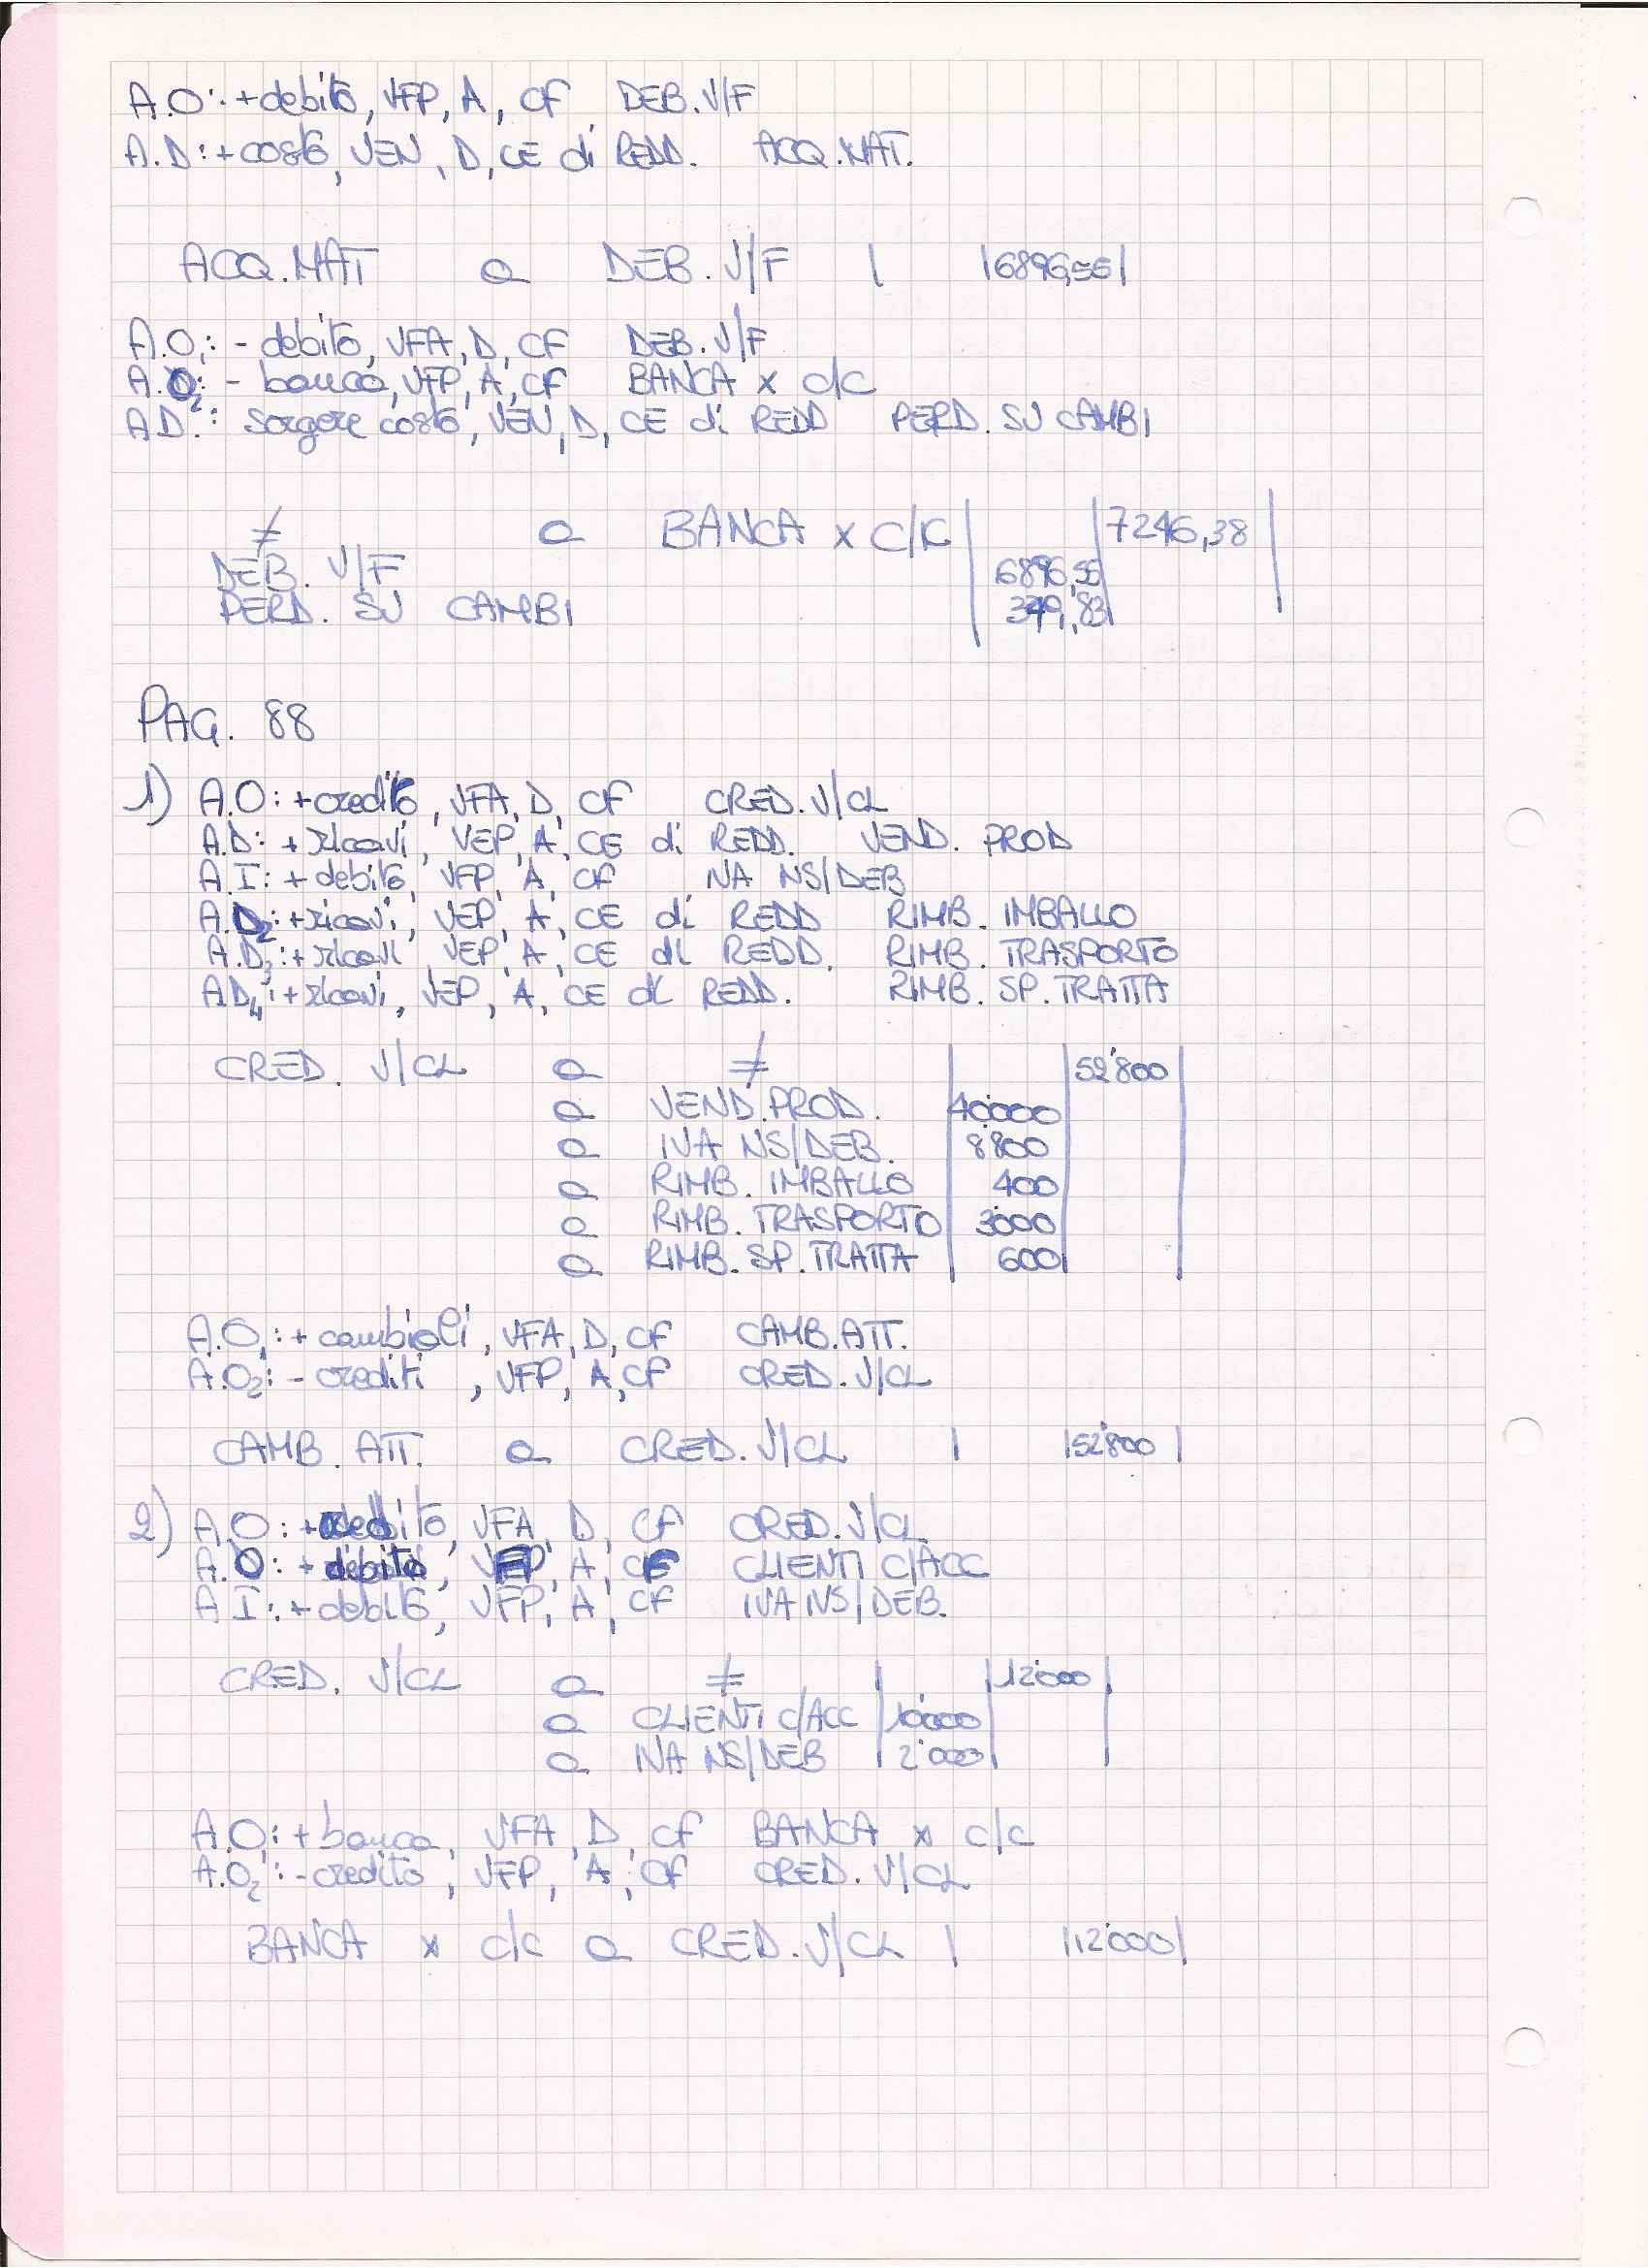 A.O: +debito, VFP, A, CF DEB. V/F
A.D: +costo, VEN, D, CE di REDD. ACQ.MAT.
ACQ.MAT a DEB. V/F | |6896,55|
A.O1: - debito, VFA, D, CF DEB. V/F
A.O2: - banca, VFP, A, CF BANCA x c/c
A.D.: sorgere costo, VEN, D, CE di REDD PERD. SU CAMBI
≠ a BANCA x C/C | |7246,38|
DEB. V/F 6896,55
PERD. SU CAMBI 349,83
PAG. 88
1) A.O: +credito, VFA, D, CF CRED. V/CL
A.D: + ricavi, VEP, A, CE di REDD. VEND. PROD
A.I: + debito, VFP, A, CF IVA NS/DEB
A.D2: +ricavi, VEP, A, CE di REDD RIMB. IMBALLO
A.D3: +ricavi, VEP, A, CE di REDD. RIMB. TRASPORTO
A.D4: +ricavi, VEP, A, CE di REDD. RIMB. SP. TRATTA
CRED. V/CL a ≠ | |52'800|
a VEND. PROD. 40'000
a IVA NS/DEB. 8'800
a RIMB. IMBALLO 400
a RIMB. TRASPORTO 3'000
a RIMB. SP. TRATTA 600
A.O1: + cambiali, VFA, D, CF CAMB. ATT.
A.O2: - crediti, VFP, A, CF CRED. V/CL
CAMB. ATT. a CRED. V/CL | |52'800|
2) A.O: + VFA, D, CF CRED. V/CL
A.O: + debito, A, CLIENTI C/ACC
A.I: + debito, VFP, A, CF IVA NS/DEB.
CRED. V/CL a ≠ | |12'000|
a CLIENTI C/ACC |10'000
a IVA NS/DEB | 2'000
A.O1: + banca, VFA, D, CF BANCA x c/c
A.O2: - credito, VFP, A, CF CRED. V/CL
BANCA x c/c a CRED. V/CL | |12'000|